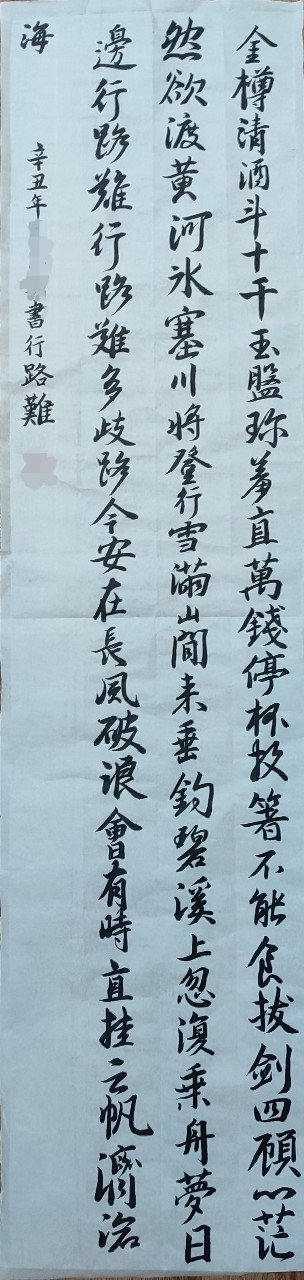 金樽清酒斗十千玉盤珎羞直萬錢停杯投箸不能食拔劍四顧心茫
然欲渡黄河冰塞川將登行雪滿山閒来垂釣碧溪上忽復乘舟夢日
邊行路難行路難多歧路今安在長風破浪會有時直挂云帆濟滄
海
辛丑年書行路難